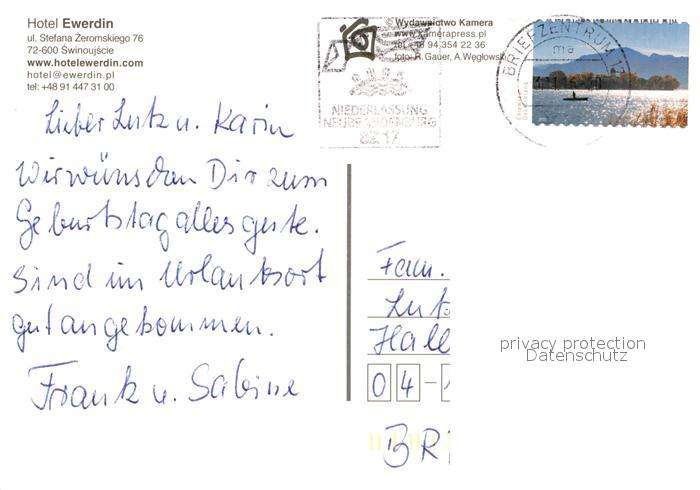 Hotel Ewerdin
ul. Stefana Żeromskiego 76
72-600 Świnoujście
www.hotelewerdin.com
hotel@ewerdin.pl
tel: +48 91 447 31 00
© Wydawnictwo Kamera
www.kamerapress.pl
tel. +48 94 354 22 36
foto: R. Gauer, A.Węgłowski
NIEDERLASSUNG
NEUBRANDENBURG
BZ 17
BRIEFZENTRUM 17
ma
Lieber Lutz u. Karin
Wir wünschen Dir zum
Geburtstag alles gute.
Sind im Urlaubsort
gut angekommen.
Frank u. Sabine
Fam.
Lutz
Halle
04-
BR
privacy protection
Datenschutz